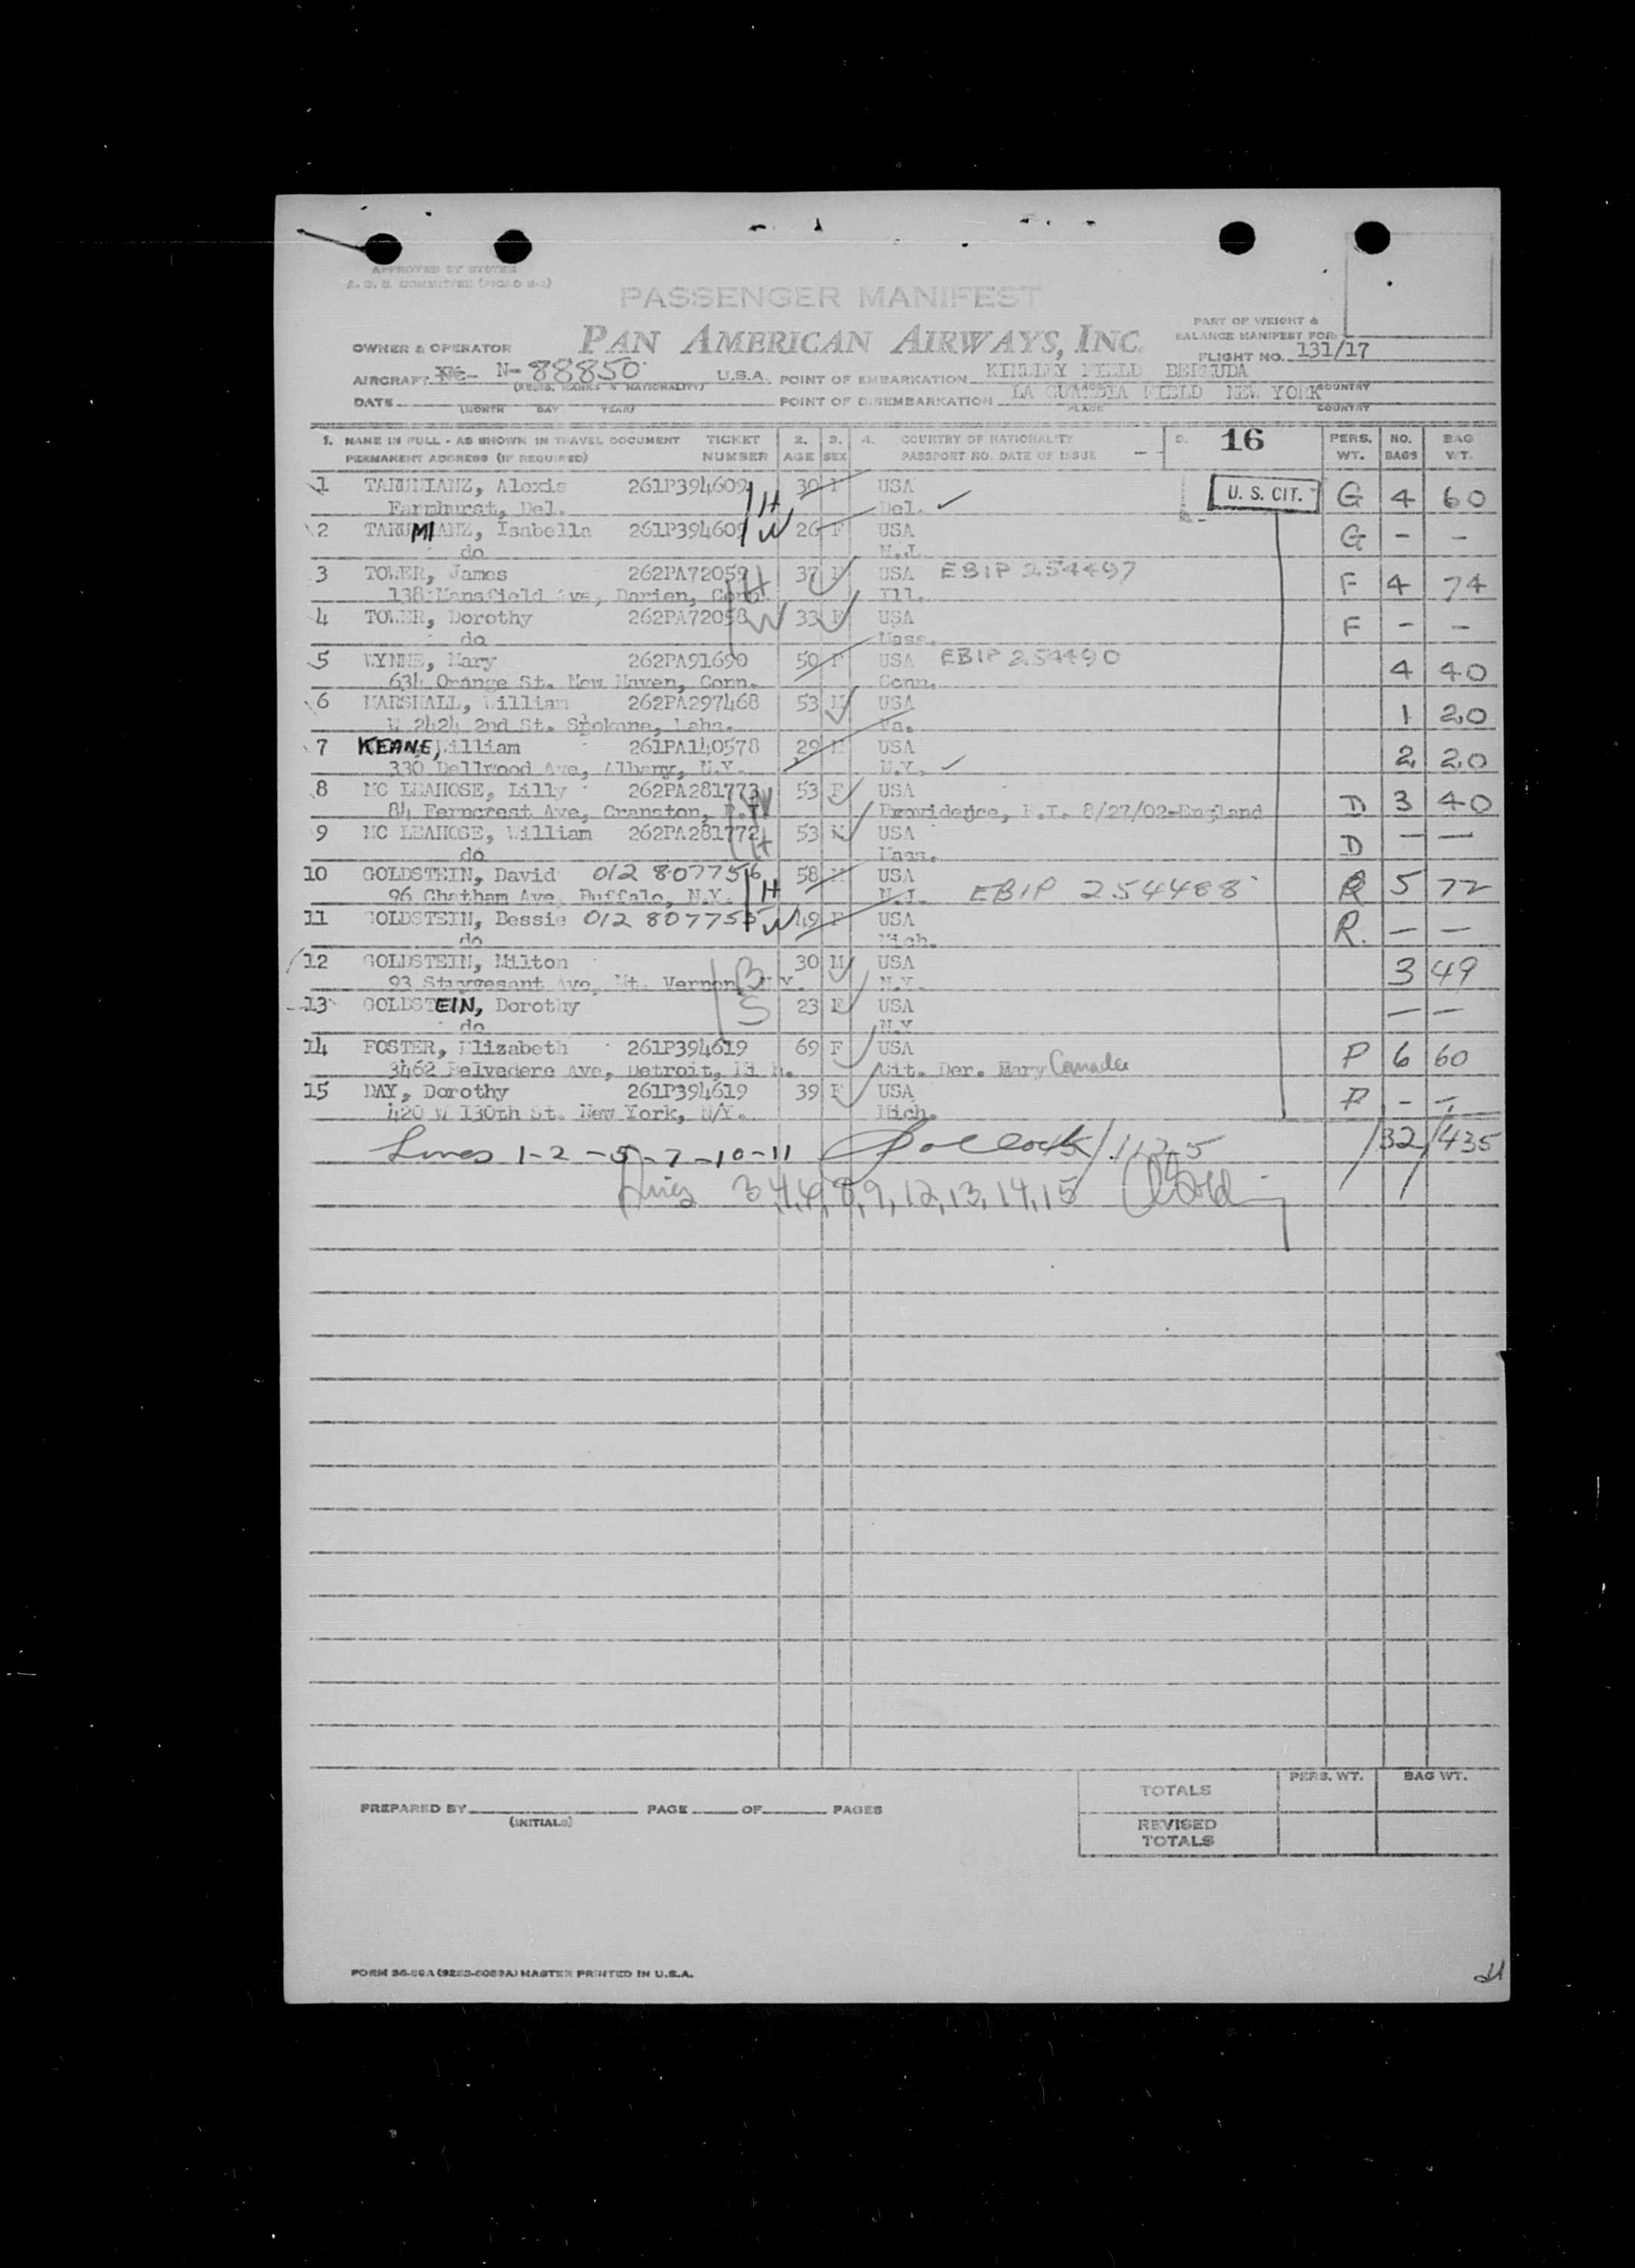 APPROVED BY SYSTEM
A.O.S. COMMITTEE (PICAO S-2)
PASSENGER MANIFEST
PAN AMERICAN AIRWAYS, INC.
PART OF WEIGHT &
BALANCE MANIFEST FOR:
OWNER & OPERATOR
FLIGHT NO. 131/17
AIRCRAFT N- 88850 U.S.A. POINT OF EMBARKATION KINDLEY FIELD BERMUDA
(REGIS. MARKS & NATIONALITY) PLACE COUNTRY
DATE POINT OF DISEMBARKATION LA GUARDIA FIELD NEW YORK
(MONTH DAY YEAR) PLACE COUNTRY
1. NAME IN FULL - AS SHOWN IN TRAVEL DOCUMENT TICKET 2. 3. 4. COUNTRY OF NATIONALITY 5. 16 PERS. NO. BAG
PERMANENT ADDRESS (IF REQUIRED) NUMBER AGE SEX PASSPORT NO. DATE OF ISSUE WT. BAGS WT.
1 TARUMIANZ, Alexis 261P394609 H 30 USA U. S. CIT. G 4 60
Farmhurst, Del. Del. ✓
2 TARUMIANZ, Isabella 261P394609 W 26 F USA G - -
do N.J.
3 TOWER, James 262PA72059 H 37 USA EBIP 254497 F 4 74
138 Mansfield Ave, Darien, Conn. Ill.
4 TOWER, Dorothy 262PA72058 W 33 F USA F - -
do Mass.
5 WYNNE, Mary 262PA91690 50 F USA EBIP 254490 4 40
634 Orange St. New Haven, Conn. Conn.
6 MARSHALL, William 262PA297468 53 M USA 1 20
W 2424 2nd St. Spokane, Wahs. Pa.
7 KEANE, William 261PA140578 29 M USA 2 20
330 Dellwood Ave, Albany, N.Y. N.Y. ✓
8 MC LEAHOSE, Lilly 262PA281773 W 53 F USA D 3 40
84 Ferncrest Ave, Cranston, R.I. Providence, R.I. 8/27/02-England
9 MC LEAHOSE, William 262PA281772 H 53 M USA D - -
do Mass.
10 GOLDSTEIN, David 012 807756 H 58 M USA R 5 72
96 Chatham Ave, Buffalo, N.Y. N.J. EBIP 254488
11 GOLDSTEIN, Bessie 012 807755 W 49 F USA R. - -
do Mich.
12 GOLDSTEIN, Milton B 30 M USA 3 49
93 Stuyvesant Ave, Mt. Vernon, N.Y. N.Y.
13 GOLDSTEIN, Dorothy S 23 F USA - -
do N.Y
14 FOSTER, Elizabeth 261P394619 69 F USA P 6 60
3462 Belvedere Ave, Detroit, Cit. Der. Mary Canada
15 DAY, Dorothy 261P394619 39 F USA P - -
420 W 130th St. New York, N/Y. Mich.
Lines 1-2-5-7-10-11 32 435
Lines 3,4,6,8,9,12,13,14,15
PREPARED BY PAGE OF PAGES
(INITIALS)
TOTALS PERS. WT. BAG WT.
REVISED
TOTALS
FORM 36-50A (9253-6059A) MASTER PRINTED IN U.S.A.